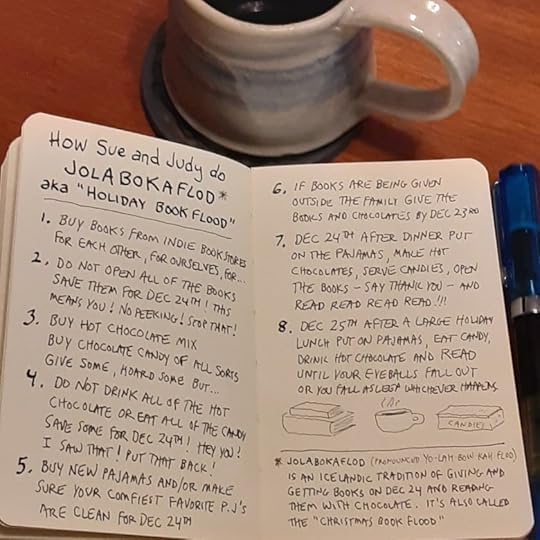 How Sue and Judy do
JOLABOKAFLOD*
aka "HOLIDAY BOOK FLOOD"
1. BUY BOOKS FROM INDIE BOOKSTORES
FOR EACH OTHER, FOR OURSELVES, FOR...
2. DO NOT OPEN ALL OF THE BOOKS
SAVE THEM FOR DEC 24TH! THIS
MEANS YOU! NO PEEKING! STOP THAT!
3. BUY HOT CHOCOLATE MIX
BUY CHOCOLATE CANDY OF ALL SORTS
GIVE SOME, HOARD SOME BUT...
4. DO NOT DRINK ALL OF THE HOT
CHOCOLATE OR EAT ALL OF THE CANDY
SAVE SOME FOR DEC 24TH! HEY YOU!
I SAW THAT! PUT THAT BACK!
5. BUY NEW PAJAMAS AND/OR MAKE
SURE YOUR COMFIEST FAVORITE P.J'S
ARE CLEAN FOR DEC 24TH
6. IF BOOKS ARE BEING GIVEN
OUTSIDE THE FAMILY GIVE THE
BOOKS AND CHOCOLATES BY DEC 23RD
7. DEC 24TH AFTER DINNER PUT
ON THE PAJAMAS, MAKE HOT
CHOCOLATES, SERVE CANDIES, OPEN
THE BOOKS - SAY THANK YOU - AND
READ READ READ READ!!!
8. DEC 25TH AFTER A LARGE HOLIDAY
LUNCH PUT ON PAJAMAS, EAT CANDY,
DRINK HOT CHOCOLATE AND READ
UNTIL YOUR EYEBALLS FALL OUT
OR YOU FALL ASLEEP WHICHEVER HAPPENS
CANDIES
* JOLABOKAFLOD (PRONOUNCED YO-LAH-BOW-KAH-FLOD)
IS AN ICELANDIC TRADITION OF GIVING AND
GETTING BOOKS ON DEC 24 AND READING
THEM WITH CHOCOLATE. IT'S ALSO CALLED
THE "CHRISTMAS BOOK FLOOD"